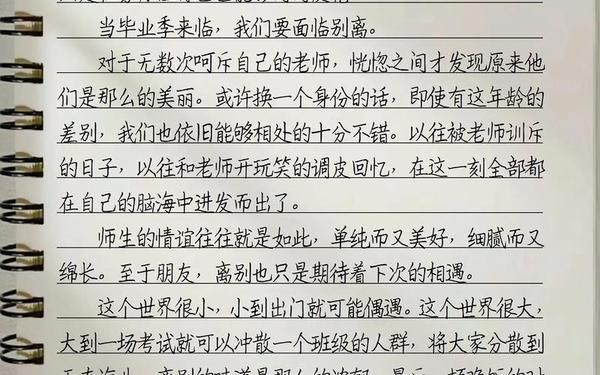 当毕业季来临，我们要面临别离。
对于无数次呵斥自己的老师，恍惚之间才发现原来他
们是那么的美丽。或许换一个身份的话，即使有这年龄的
差别，我们也依旧能够相处的十分不错。以往被老师训斥
的日子，以往和老师开玩笑的调皮回忆，在这一刻全部都
在自己的脑海中迸发而出了。
师生的情谊往往就是如此，单纯而又美好，细腻而又
绵长。至于朋友，离别也只是期待着下次的相遇。
这个世界很小，小到出门就可能偶遇。这个世界很大，
大到一场考试就可以冲散一个班级的人群，将大家分散到